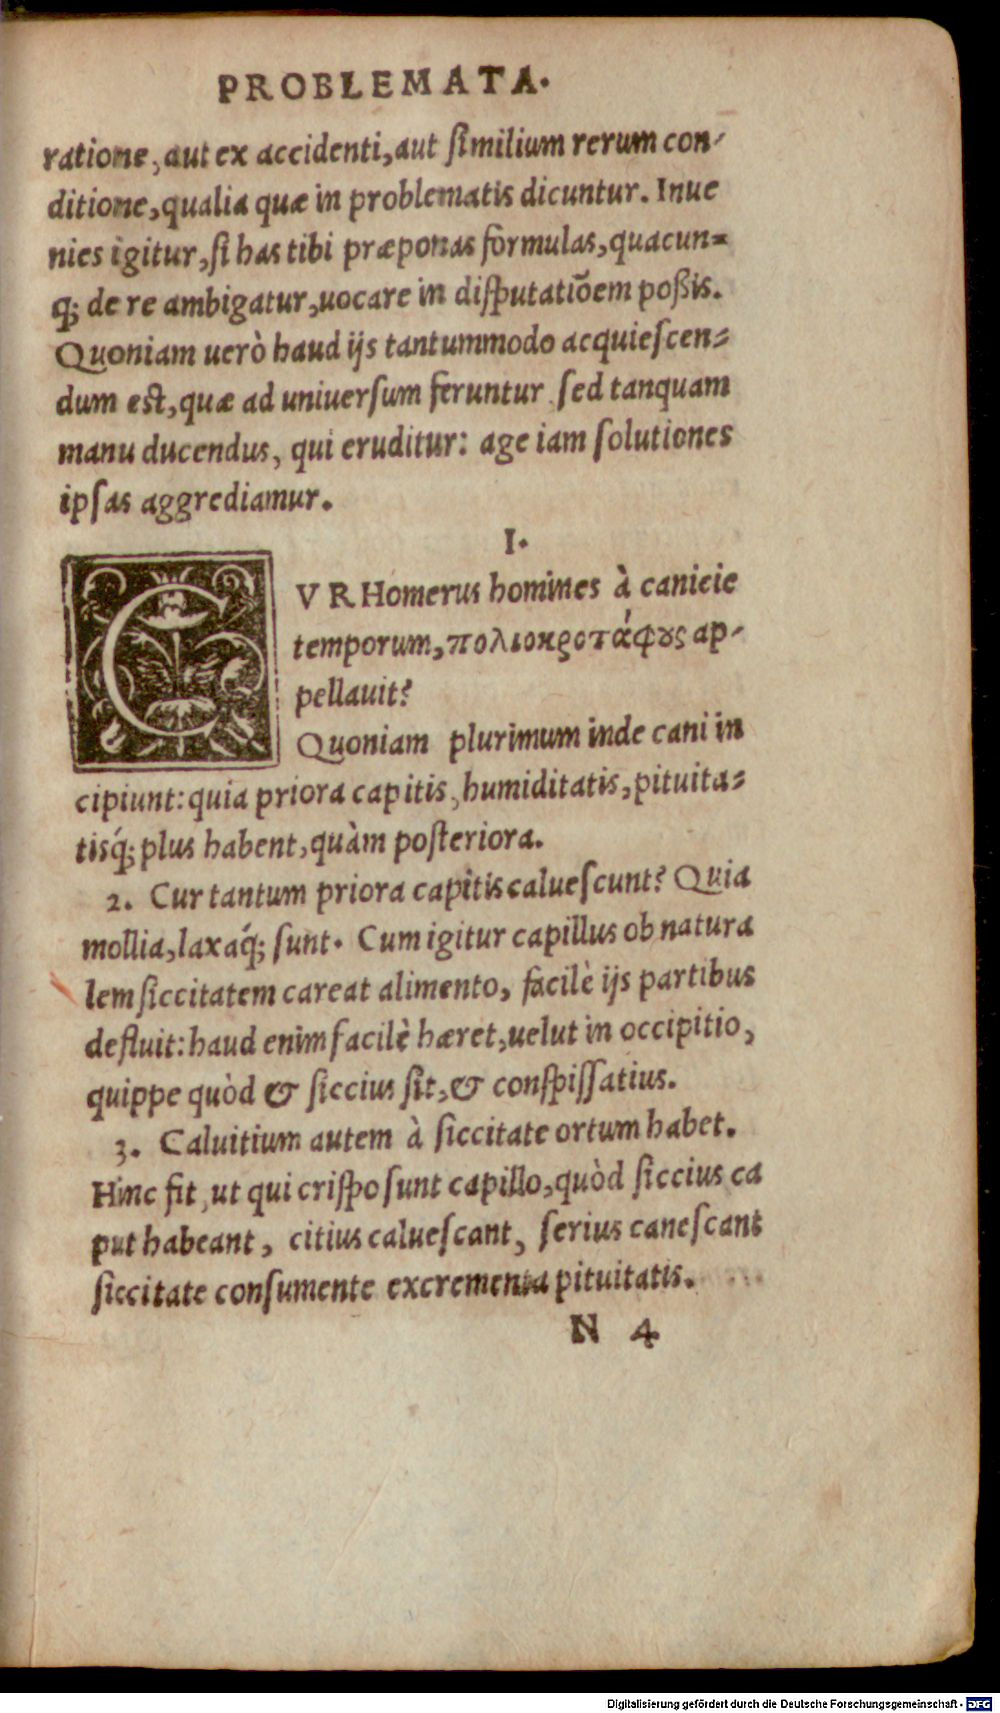 PROBLEMATA.
ratione, aut ex accidenti, aut ſimilium rerum con-
ditione, qualia quæ in problematis dicuntur. Inue
nies igitur, ſi has tibi præponas formulas, quacun=
q; de re ambigatur, uocare in diſputatiõem poßis.
Quoniam uerò haud ijs tantummodo acquieſcen=
dum eſt, quæ ad uniuerſum feruntur, ſed tanquam
manu ducendus, qui eruditur: age iam ſolutiones
ipſas aggrediamur.
I.
CVR Homerus homines à canicie
temporum, πολιοκροτάφους ap-
pellauit?
Quoniam plurimum inde cani in
cipiunt: quia priora capitis, humiditatis, pituita=
tisq́; plus habent, quàm poſteriora.
2. Cur tantum priora capitis calueſcunt? Quia
mollia, laxaq́; ſunt. Cum igitur capillus ob natura
lem ſiccitatem careat alimento, facilè ijs partibus
defluit: haud enim facilè hæret, uelut in occipitio,
quippe quòd & ſiccius ſit, & conſpiſſatius.
3. Caluitium autem à ſiccitate ortum habet.
Hinc fit, ut qui criſpo ſunt capillo, quòd ſiccius ca
put habeant, citius calueſcant, ſerius caneſcant
ſiccitate conſumente excrementa pituitatis.
N 4
Digitalisierung gefördert durch die Deutsche Forschungsgemeinschaft - DFG